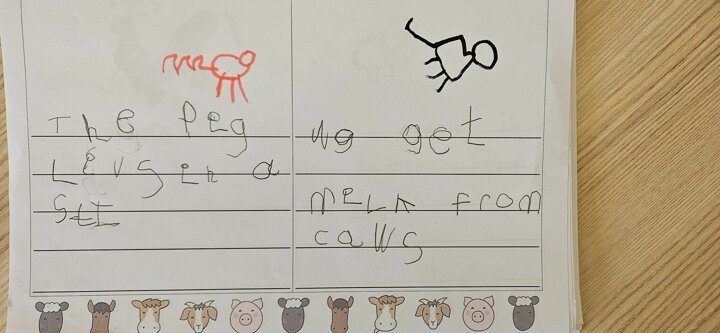 The Peg
Levs in a
StI
We get
melk from
caws